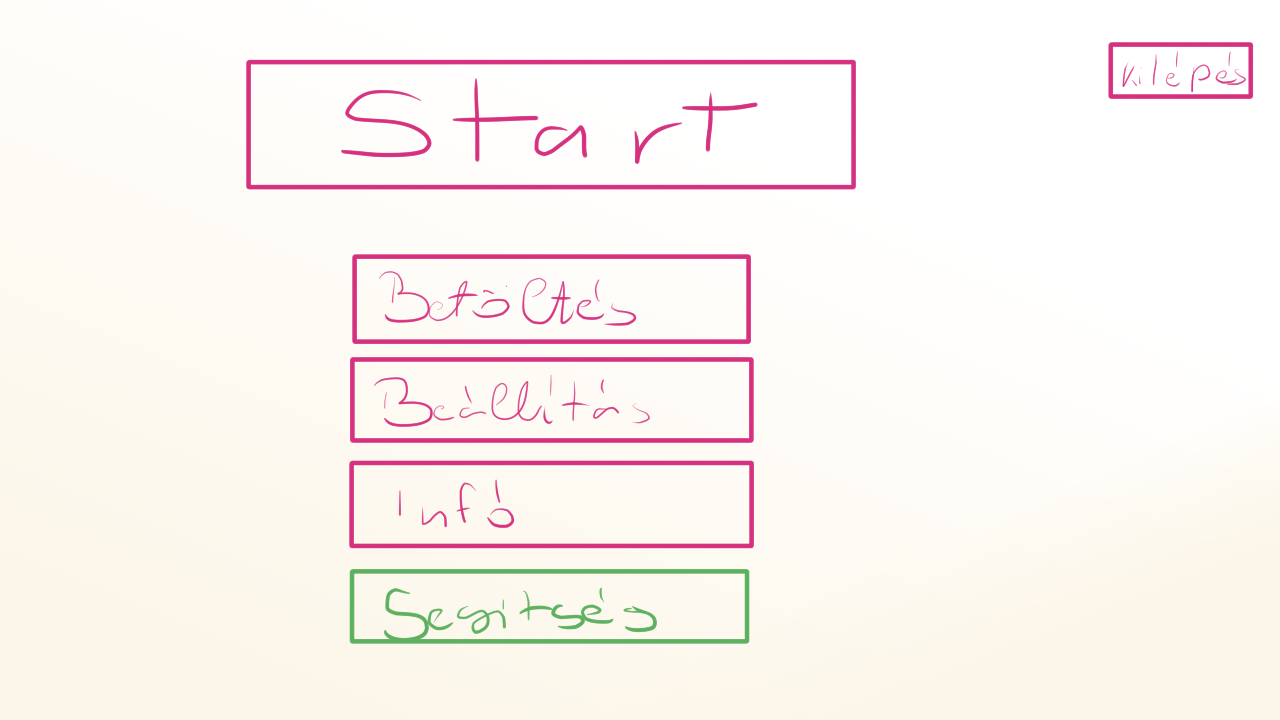 Start
Kilépés
Betöltés
Beállítás
Infó
Segítség